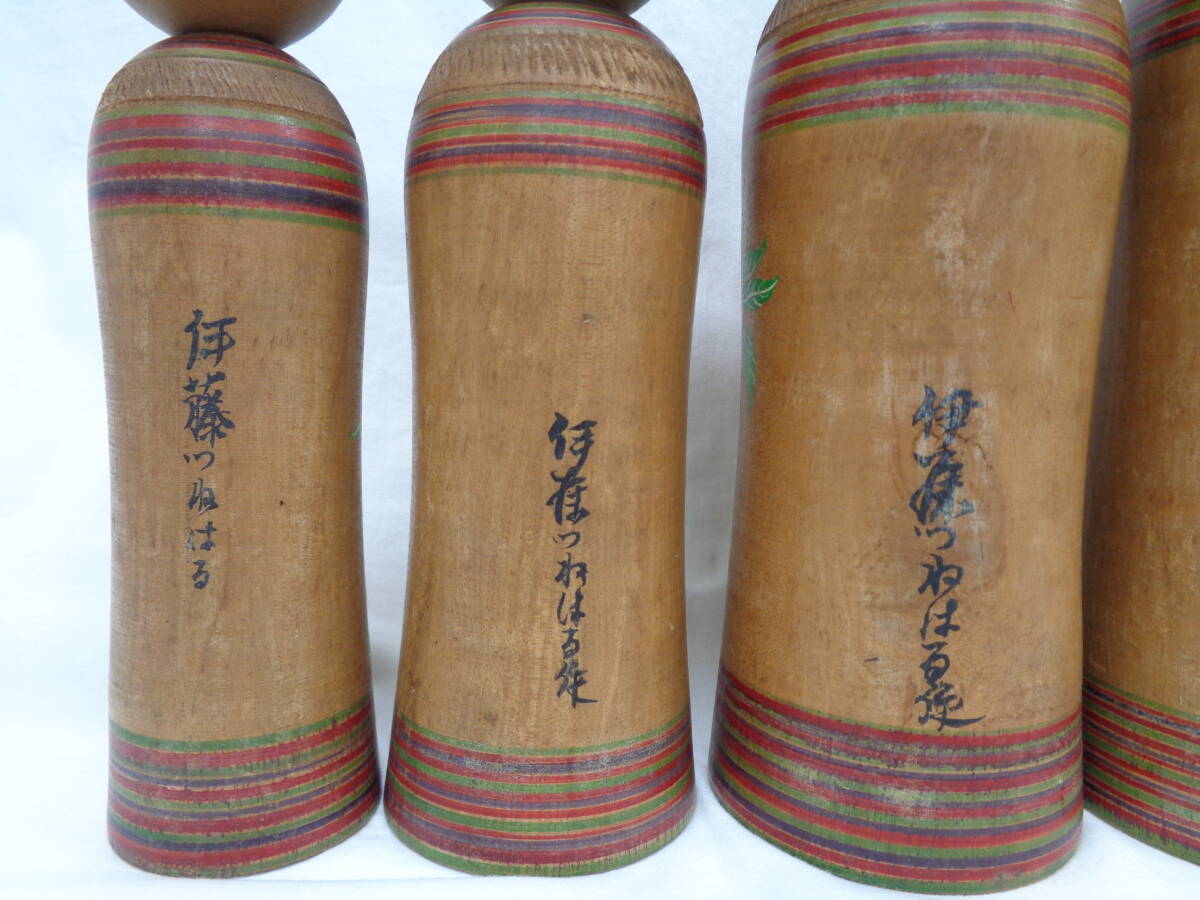 伊藤つねはる
伊藤つねはる作
伊藤つねはる作